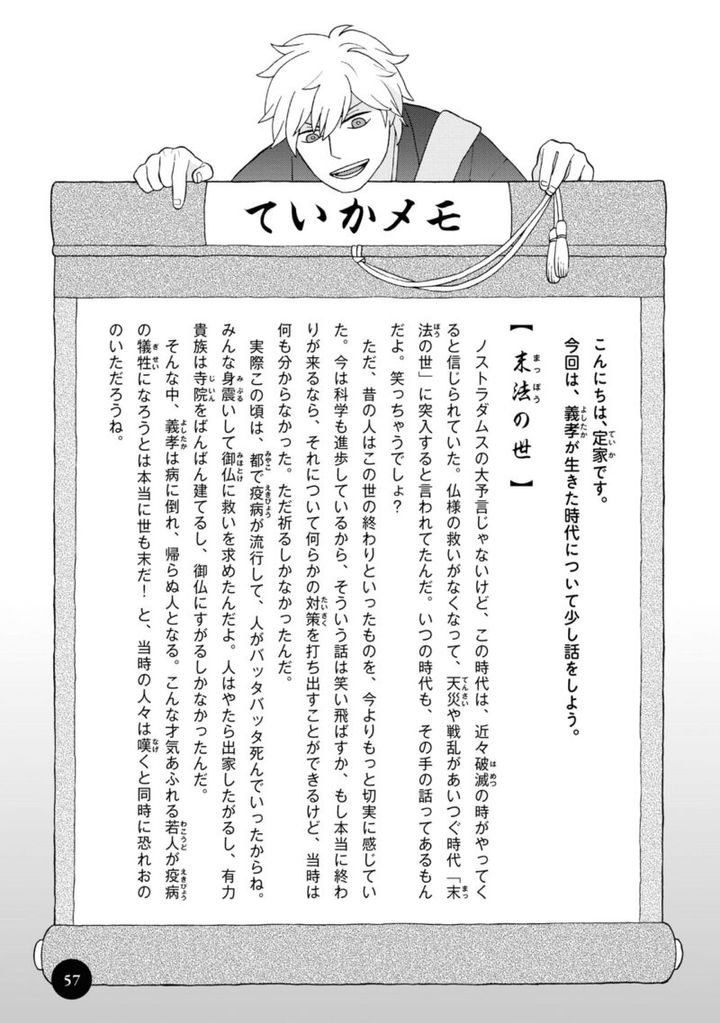 ていかメモ
こんにちは、定家です。
今回は、義孝が生きた時代について少し話をしよう。
【末法の世】
ノストラダムスの大予言じゃないけど、この時代は、近々破滅の時がやってく
ると信じられていた。仏様の救いがなくなって、天災や戦乱があいつぐ時代「末
法の世」に突入すると言われてたんだ。いつの時代も、その手の話ってあるもん
だよ。笑っちゃうでしょ?
ただ、昔の人はこの世の終わりといったものを、今よりもっと切実に感じてい
た。今は科学も進歩しているから、そういう話は笑い飛ばすか、もし本当に終わ
りが来るなら、それについて何らかの対策を打ち出すことができるけど、当時は
何も分からなかった。ただ祈るしかなかったんだ。
実際この頃は、都で疫病が流行して、人がバッタバッタ死んでいったからね。
みんな身震いして御仏に救いを求めたんだよ。人はやたら出家したがるし、有力
貴族は寺院をばんばん建てるし、御仏にすがるしかなかったんだ。
そんな中、義孝は病に倒れ、帰らぬ人となる。こんな才気あふれる若人が疫病
の犠牲になろうとは本当に世も末だ! と、当時の人々は嘆くと同時に恐れおの
のいただろうね。
57